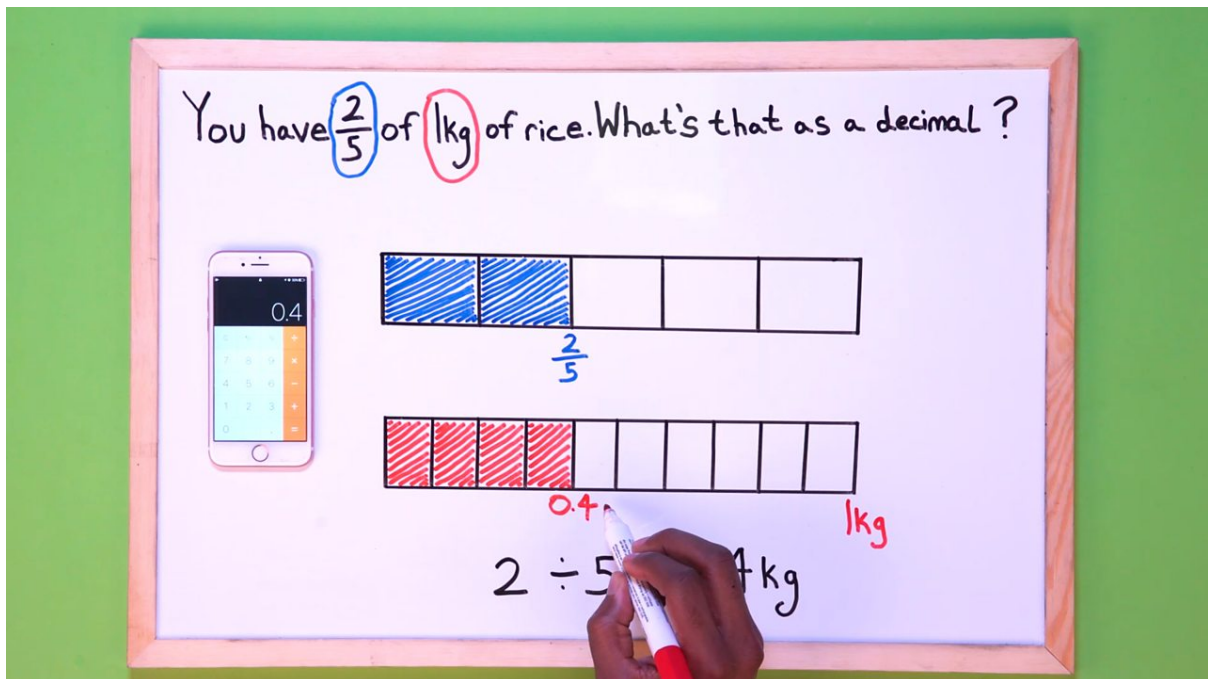 You have 2/5 of 1kg of rice. What's that as a decimal?
0.4
7 8 9 ×
4 5 6 −
1 2 3 +
0 . =
2/5
0.4
1kg
2 ÷ 5 4 kg